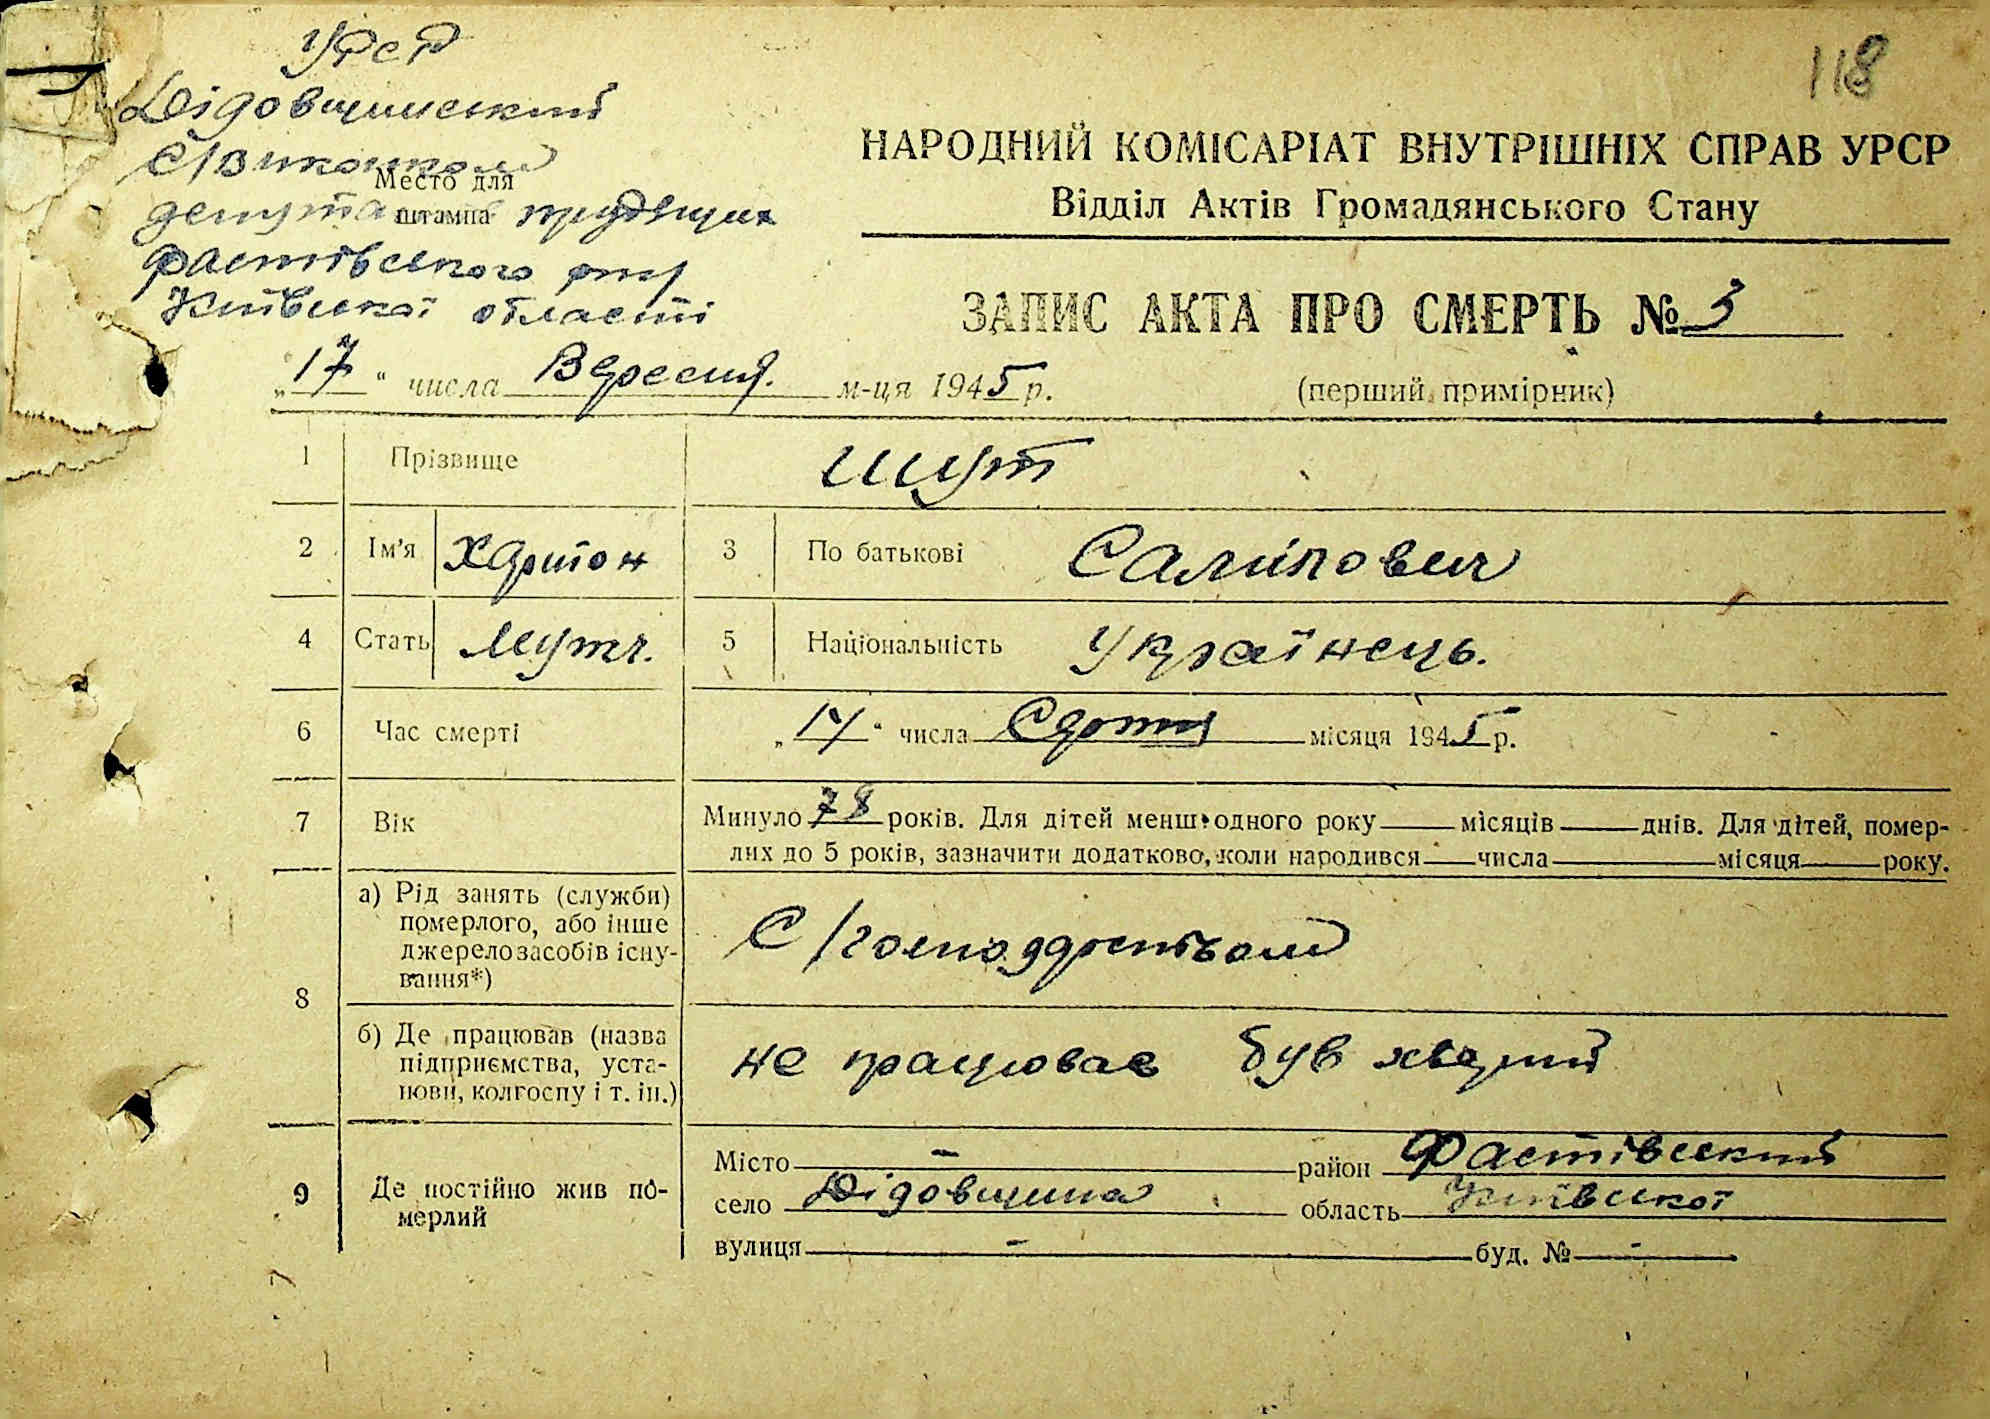 УРСР
118
Дідовщинський
с/виконком
Место для
штампа
депутатів трудящих
Фастівського р-ну
Київської області
НАРОДНИЙ КОМІСАРІАТ ВНУТРІШНІХ СПРАВ УРСР
Відділ Актів Громадянського Стану
ЗАПИС АКТА ПРО СМЕРТЬ № 3
„17“ числа Вересня. м-ця 1945 р.
(перший примірник)
1 Прізвище Шут
2 Ім'я Харитон 3 По батькові
4 Стать Мужч. 5 Національність Українець.
6 Час смерті „14“ числа Серпня місяця 1945 р.
7 Вік Минуло 78 років. Для дітей менш одного року місяців днів. Для дітей, помер-
лих до 5 років, зазначити додатково, коли народився числа місяця року.
8 а) Рід занять (служби)
померлого, або інше
джерело засобів існу-
вання*)
С/господарством
б) Де працював (назва
підприємства, уста-
нови, колгоспу і т. ін.)
не працював був хворий
9 Де постійно жив по-
мерлий
Місто - район Фастівський
село Дідовщина область Київської
вулиця - буд. № -